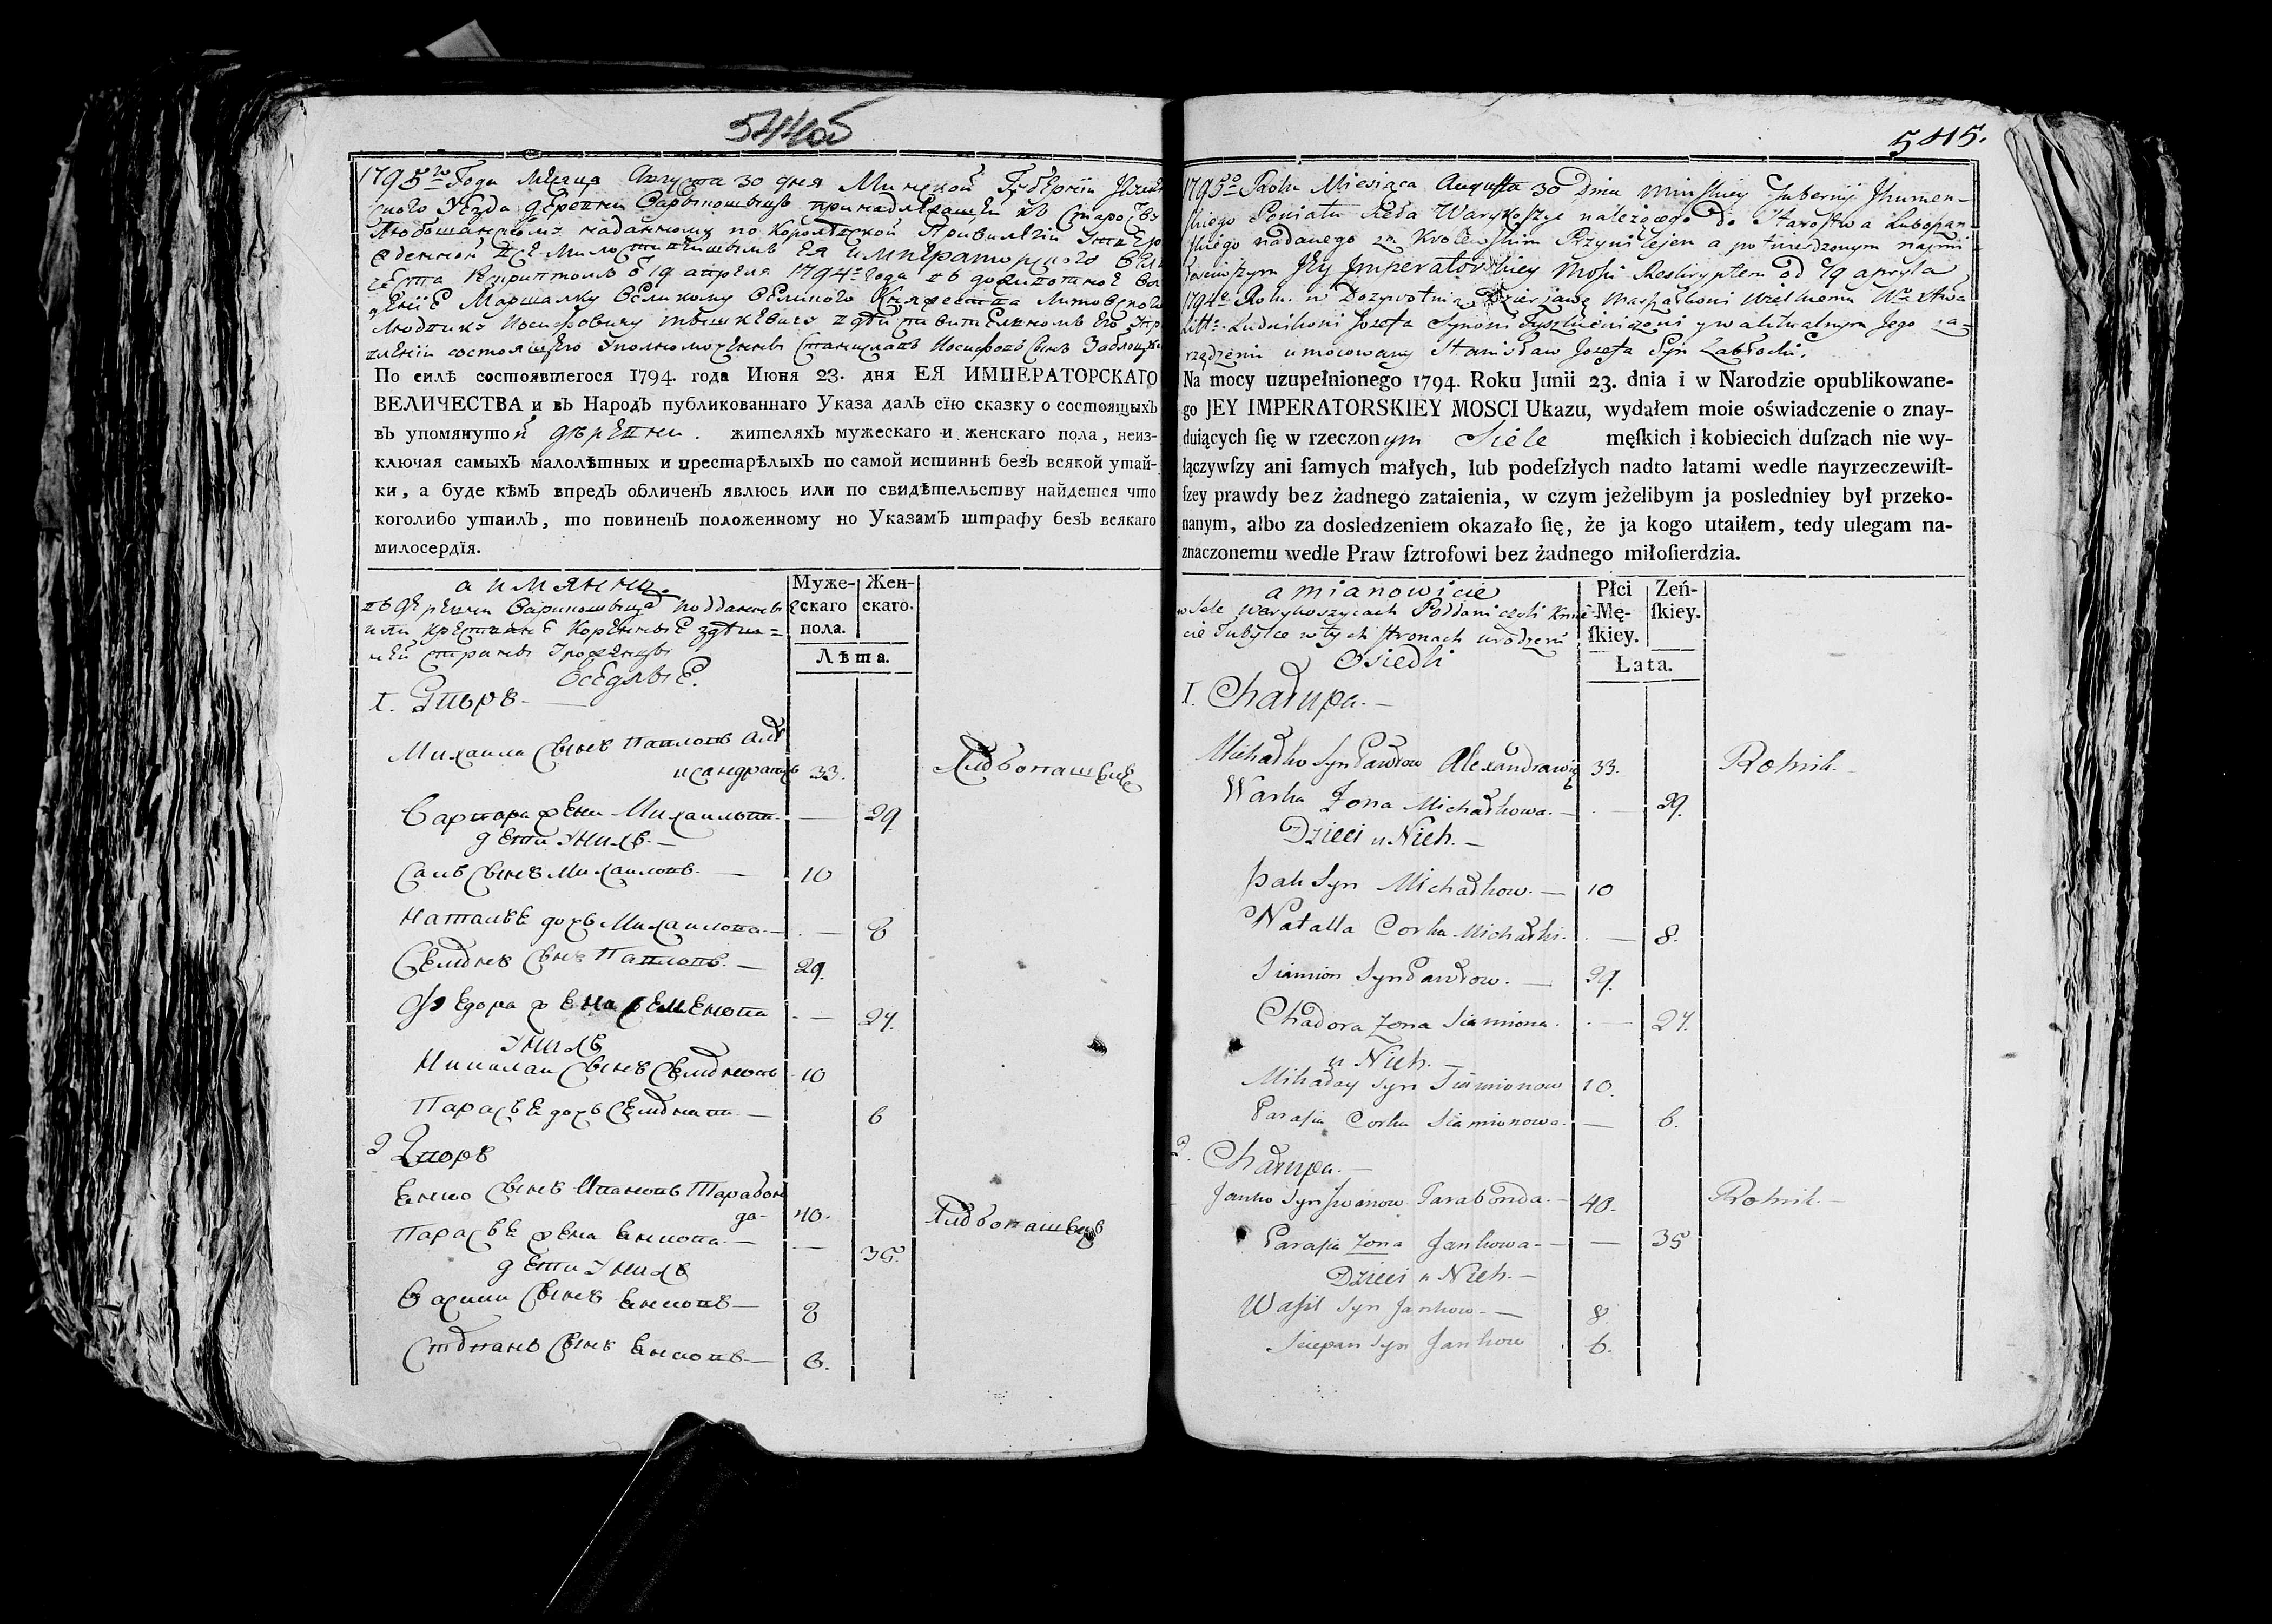 544об
1795го Года Месяца Августа 30 дня Минской Губернии
Уезда деревни принадлежащей къ староству
Любошанскому наданному по Королевской Привилегии
ЕЯ императорского
19 апреля 1794го года въ
Маршалку Великому Великого Княжества Литовского
Людвику Иосифовичу Тышкевичу въ действительномъ его
состоящего Уполномоченны Станиславъ Иосифовъ Сынъ
По силѣ состоявшегося 1794. года Июня 23. дня ЕЯ ИМПЕРАТОРСКАГО
ВЕЛИЧЕСТВА и въ Народъ публикованнаго Указа далъ сїю сказку о состоящыхъ
въ упомянутой деревни. жителяхъ мужескаго и женскаго пола, неиз-
ключая самыхъ малолѣтныхъ и престарѣлыхъ по самой истиннѣ безъ всякой утай-
ки, а буде кѣмъ впредъ обличенъ явлюсь или по свидѣтельству найдется что
коголибо утаилъ, то повиненъ положенному по Указамъ штрафу безъ всякаго
милосердїя.
а имянно.
Муже-
скаго
пола.
Жен-
скаго.
Лѣта.
въ деревни подданные
или крестьяне Коренные здеш=
ней стороны
Оседлые.
1. Дворъ.—
Михайла Сынъ Павловъ Але
ксандровичъ 33. Хлебопашецъ
Варвара жена Михайлова.— — 29.
дети у нихъ.—
Сакъ Сынъ Михайловъ.— 10
Наталья дочь Михайлова.— — 8
Семенъ Сынъ Павловъ.— 29.
Федора жена Семенова — 27.
у нихъ
Николай Сынъ Семеновъ 10
Парасья дочь Семенова — 6
2 Дворъ
Янко Сынъ Ивановъ Тарабон
да— 40. Хлебопашецъ
Парасья жена Янкова.— — 35.
дети у нихъ
Василь Сынъ Янковъ— 8
Степанъ Сынъ Янковъ— 6.
5415.
1795o Roku Miesiąca Augusta 30 Dnia Minskiey Gubernij Jhumen-
skiego Powiatu Sieła Warykoszye należącego do Starostwa Luboszan
skiego nadanego za Krolewskim Przywilejem a potwierdzonym naymi
łosciwszym Jey Imperatorskiey Mosci Reskryptem od 19 apryla
1794o Roku w Dozywotnią Dzierżawę Marszałkowi Wielkiemu
Litto. Ludwikowi Jozefa Synowi Tyszkiewiczowi y w aktualnym Jego za-
rządzeniu umocowany Stanisław Jozefa Syn Zabłocki.
Na mocy uzupełnionego 1794. Roku Junii 23. dnia i w Narodzie opublikowane-
go JEY IMPERATORSKIEY MOSCI Ukazu, wydałem moie oświadczenie o znay-
duiących ſię w rzeczonym Siele męſkich i kobiecich duſzach nie wy-
łączywſzy ani ſamych małych, lub podeſzłych nadto latami wedle nayrzeczewiſt-
ſzey prawdy bez żadnego zataienia, w czym jeżelibym ja posledniey był przeko-
nanym, albo za dosledzeniem okazało ſię, że ja kogo utaiłem, tedy ulegam na-
znaczonemu wedle Praw ſztrofowi bez żadnego miłoſierdzia.
a mianowicie
Płci
Mę-
ſkiey.
Zeń-
ſkiey.
Lata.
w Sele Warykoszycach Poddani czyli Kmie-
cie Tubylce w tych stronach urodzeni
Osiedli
1. Chałupa.—
Michałko Syn Pawłow Alexandrowicz 33. Rolnik.—
Warka Zona Michałkowa.— — 29.
Dzieci u Nich.—
Sak Syn Michałkow.— 10
Natalla Corka Michałki. — 8.
Siamion Syn Pawłow.— 29.
Chadora Zona Siamiona. — 27.
u Nich.—
Mikałay Syn Siamionow 10.
Parasia Corka Siamionowa.— — 6.
2. Chałupa.—
Janko Syn Iwanow Tarabonda.— 40. Rolnik.—
Parasia Zona Jankowa.— — 35
Dzieci u Nich.—
Wasil Syn Jankow.— 8.
Sciepan Syn Jankow 6.